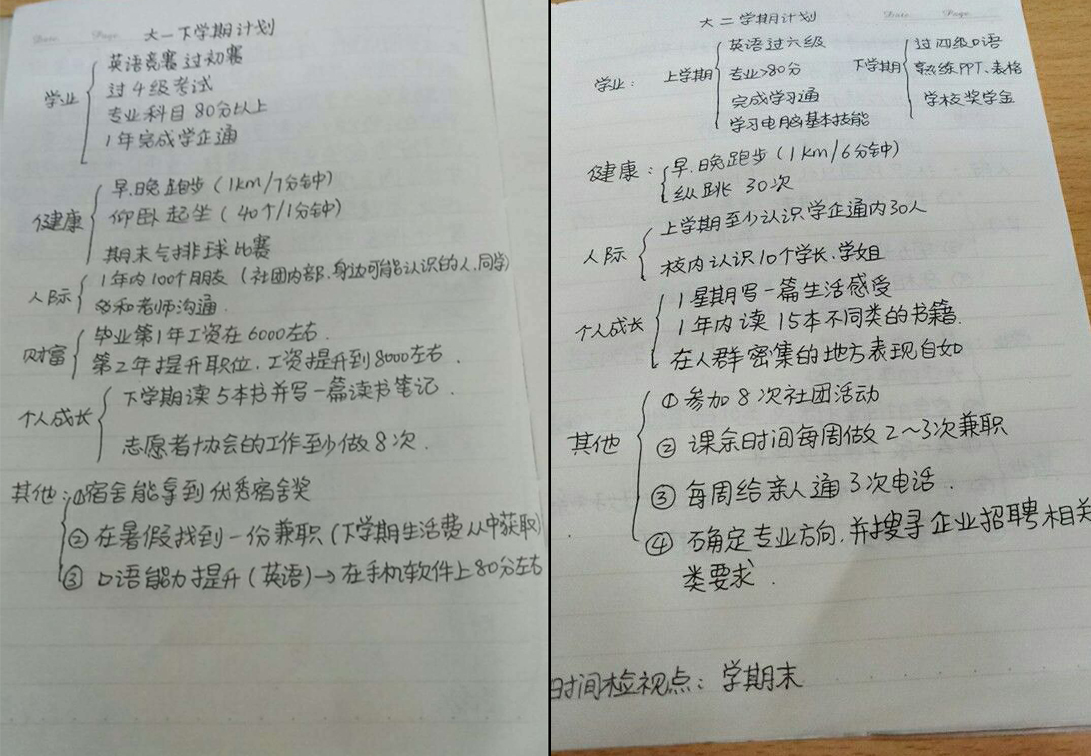 Date. Page.
大一下学期计划
学业
英语竞赛过初赛
过4级考试
专业科目80分以上
1年完成学企通
健康
早.晚跑步(1km/7分钟)
仰卧起坐(40个/1分钟)
期末气排球比赛
人际
1年内100个朋友(社团内部、身边可能认识的人.同学)
多和老师沟通.
财富
毕业第1年工资在6000左右.
第2年提升职位.工资提升到8000左右.
个人成长
下学期读5本书并写一篇读书笔记.
志愿者协会的工作至少做8次.
其他:①宿舍能拿到优秀宿舍奖
②在暑假找到一份兼职(下学期生活费从中获取)
③口语能力提升(英语)→在手机软件上80分左右
Date. Page.
大二学期计划
学业:
上学期
英语过六级
专业>80分
完成学习通
学习电脑基本技能
下学期
过四级口语
熟练PPT、表格
学校奖学金
健康:
早.晚跑步(1km/6分钟)
纵跳30次
人际
上学期至少认识学企通内30人
校内认识10个学长、学姐
个人成长
1星期写一篇生活感受
1年内读15本不同类的书籍.
在人群密集的地方表现自如
其他
①参加8次社团活动
②课余时间每周做2~3次兼职
③每周给亲人通3次电话.
④确定专业方向.并搜寻企业招聘相关
类要求.
时间检视点:学期末